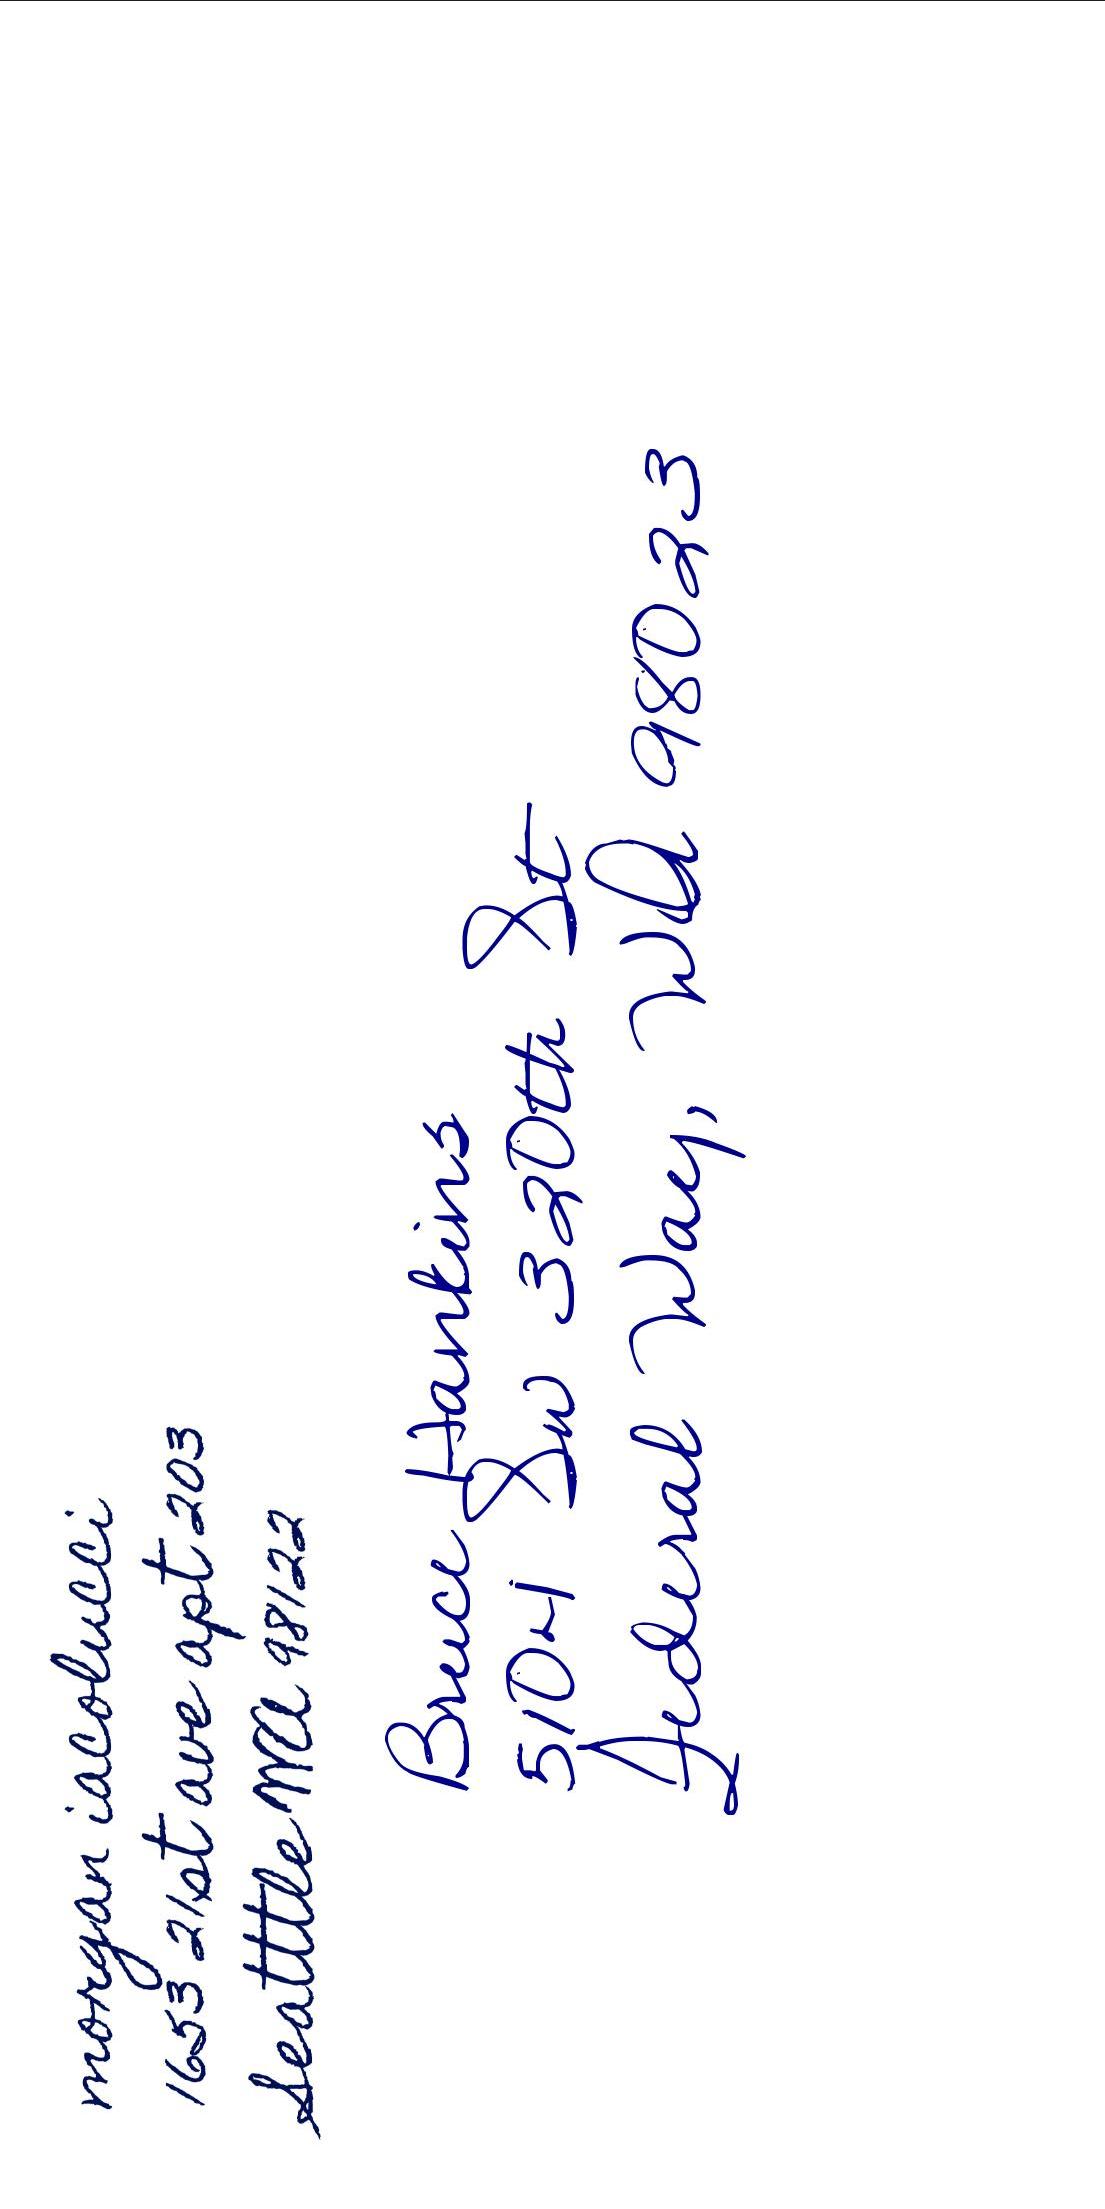 morgan iacolucci
1653 21st ave apt 203
Seatttle WA 98122
Bruce Hankins
5104 SW 320th St
Federal Way, WA 98023